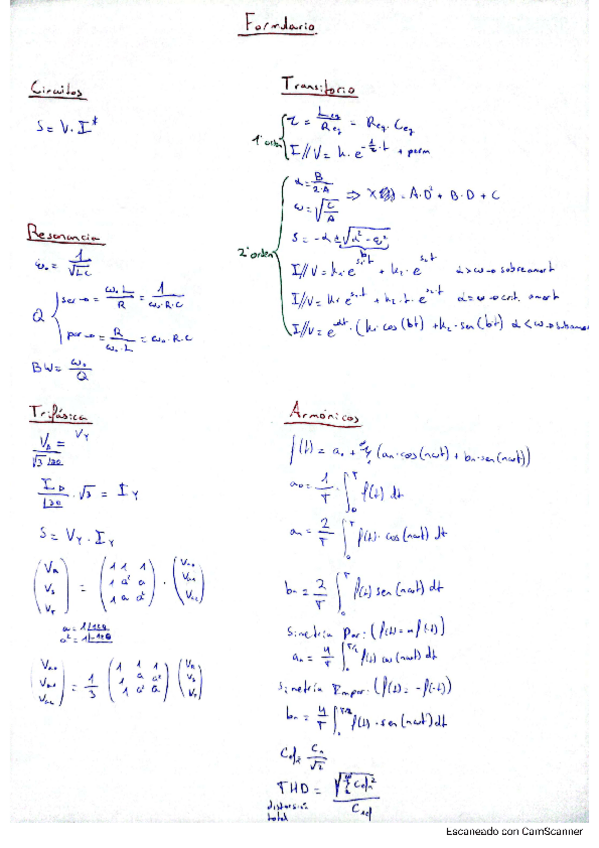 Formulario
Circuitos
S = V · I*
Resonancia
ω₀ = 1/√(LC)
Q { serie → = ω₀·L/R = 1/(ω₀·R·C)
par → = R/(ω₀·L) = ω₀·R·C
BW = ω₀/Q
Trifásica
V_Δ/(√3 ∠30) = V_Y
I_D/∠30 · √3 = I_Y
S = V_Y · I_Y
(V_R V_S V_T) = (1 1 1; 1 a² a; 1 a a²) · (V_a0 V_a1 V_a2)
a = 1∠120
a² = 1∠-120
(V_a0 V_a1 V_a2) = 1/3 (1 1 1; 1 a a²; 1 a² a) (V_R V_S V_T)
Transitorio
1º orden { τ = L_eq/R_eq = R_eq · C_eq
I//V = k · e^(-1/τ · t) + perm
2º orden { α = B/(2·A) ⇒ X = A·D² + B·D + C
ω = √(C/A)
S = -α ± √(α² - ω²)
b
I//V = k₁·e^(s₁·t) + k₂·e^(s₂·t) α > ω → sobreamort
I//V = k₁·e^(s₁·t) + k₂·t·e^(s₂·t) α = ω → crít. amort
I//V = e^(-αt) · (k₁·cos(bt) + k₂·sen(bt)) α < ω → subamort
Armónicos
f(t) = a₀ + Σ (an·cos(nωt) + bn·sen(nωt))
a₀ = 1/T · ∫₀ᵀ f(t) dt
an = 2/T ∫₀ᵀ f(t) · cos(nωt) dt
bn = 2/T ∫₀ᵀ f(t) sen(nωt) dt
Simetría Par: (f(t) = f(-t))
an = 4/T ∫₀^(T/2) f(t) cos(nωt) dt
Simetría Impar: (f(t) = -f(-t))
bn = 4/T ∫₀^(T/2) f(t) · sen(nωt) dt
Cef = Cn/√2
THD = √(Σ Cefn²)/Cef
distorsión
total
Escaneado con CamScanner